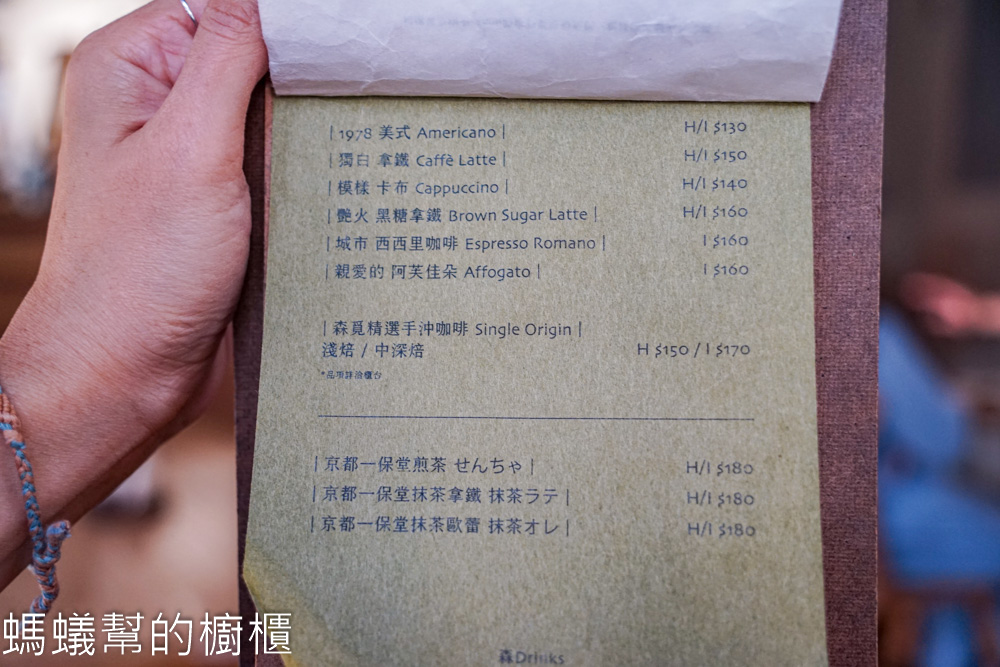 |1978 美式 Americano| H/I $130
|獨白 拿鐵 Caffè Latte| H/I $150
|模樣 卡布 Cappuccino| H/I $140
|艷火 黑糖拿鐵 Brown Sugar Latte| H/I $160
|城市 西西里咖啡 Espresso Romano| I $160
|親愛的 阿芙佳朵 Affogato| I $160
|森覓精選手沖咖啡 Single Origin|
淺焙 / 中深焙 H $150 / I $170
*品項詳洽櫃台
|京都一保堂煎茶 せんちゃ| H/I $180
|京都一保堂抹茶拿鐵 抹茶ラテ| H/I $180
|京都一保堂抹茶歐蕾 抹茶オレ| H/I $180
森Drinks
螞蟻幫的櫥櫃